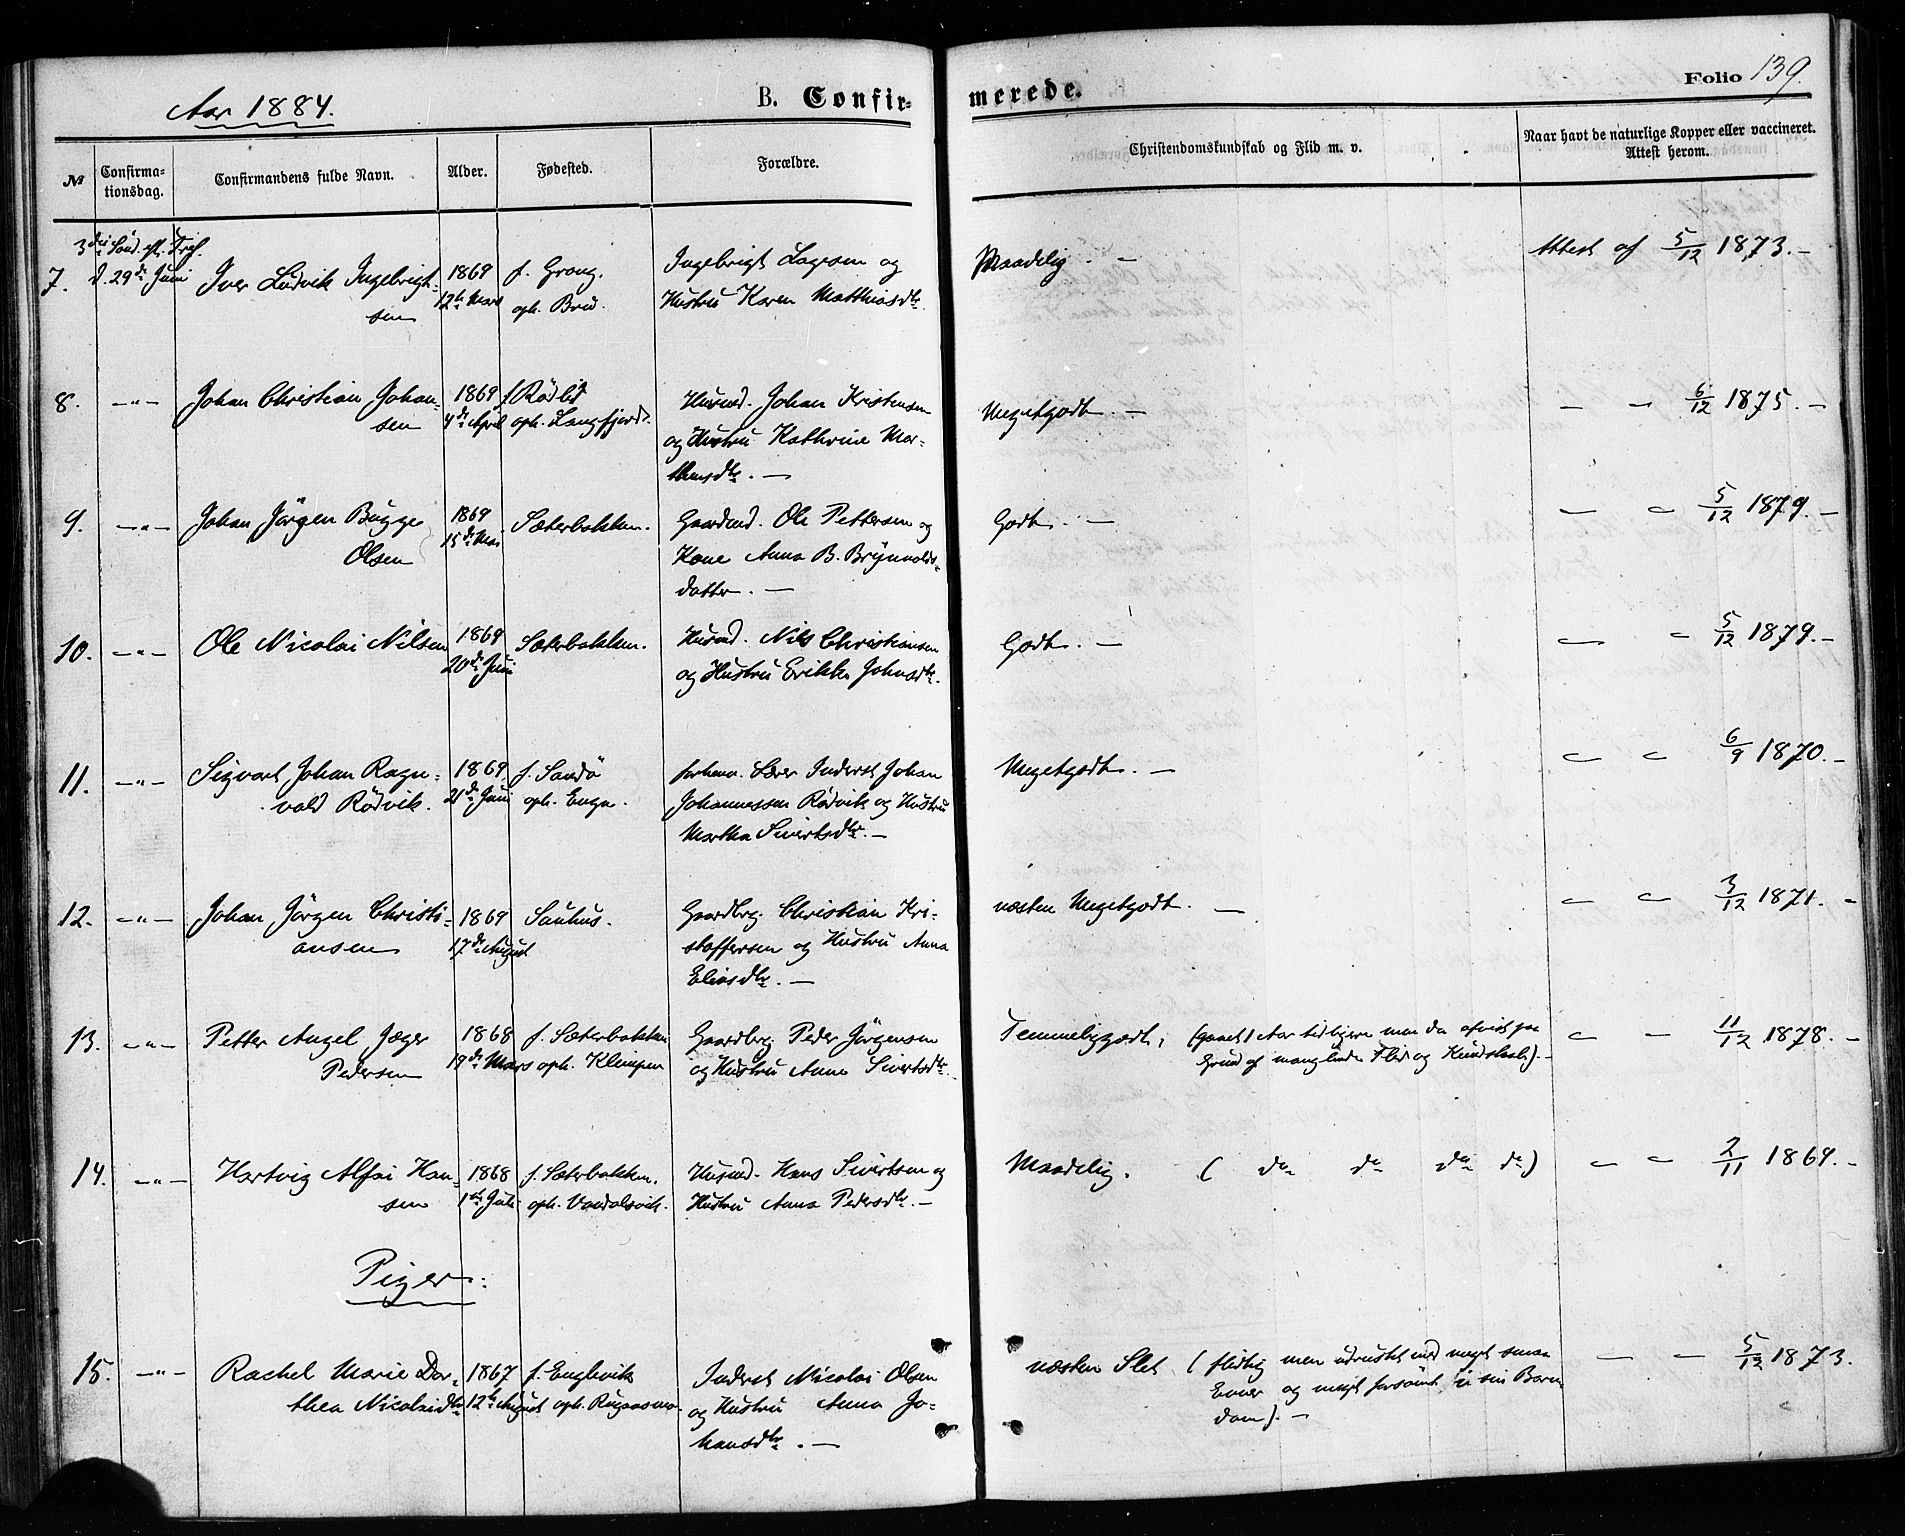 Aar 1884.
B. Confir-
merede.
Folio 139.
№
Confirma-
tionsdag.
Confirmandens fulde Navn.
Alder.
Fødested.
Forældre.
Christendomskundskab og Flid m. v.
Naar havt de naturlige Kopper eller vaccineret.
Attest herom.
3die Sönd. eft. Tref.
7. d. 29de Juni
Iver Ludvik Ingebrigt-
sen
1869
12te Mars
f. Grong.
oph. Brud.
Ingebrigt Lagesen og
Hustru Karen Matthiasdtr.
Maadelig. —
Attest af 5/12 1873. —
8. —"—
Johan Christian Johan-
sen
1869
4de April
f. Rödlid
oph. Langfjord.
Husmd. Johan Kristensen
og Hustru Kathrine Mor-
tensdtr. —
Megetgodt. —
— — 6/12 1875. —
9. —"—
Johan Jörgen Bugge
Olsen
1869
15de Mai
Sæterbakken.
Gaardmd. Ole Pettersen og
Kone Anna B. Brynnolds-
datter. —
Godt. —
— — 5/12 1879. —
10. —"—
Ole Nicolai Nilsen
1869
20de Juni
Sæterbakken.
Husmd. Nils Christiansen
og Hustru Erikka Johnsdtr.
Godt. —
— — 5/12 1879. —
11. —"—
Sigvart Johan Ragn-
vald Rödvik.
1869
21de Juni
f. Sandö
oph. Engn.
forhenv. Lærer Inderst Johan
Johannessen Rödvik og Hustru
Martha Sivertsdtr. —
Megetgodt. —
— — 6/9 1870. —
12. —"—
Johan Jörgen Christi-
ansen
1869
17de August
Sauhus.
Gaardbrg. Christian Kri-
stoffersen og Hustru Anna
Eliasdtr. —
næsten Megetgodt. —
— — 3/12 1871. —
13. —"—
Petter Angel Jæger
Pedersen
1868
19de Mars
f. Sæterbakken
oph. Klimpen
Gaardbrg. Peder Jörgensen
og Hustru Anne Sivertsdtr.
Temmeliggodt, (gaaet 1 Aar tidligere men da afvist paa
Grund af manglende Flid og Kundskab). —
— — 11/12 1878. —
14. —"—
Hartvig Alfai Han-
sen
1868
1ste Juli
f. Sæterbakken.
oph. Vandalsvik.
Husmd. Hans Sivertsen og
Hustru Anna Pedersdtr. —
Maadelig. ( do do do do )
— — 2/11 1869. —
Piger:
15. —"—
Rachel Marie Dor-
thea Nicolaidtr
1867
12te August
f. Englevik
oph.
Inderst Nicolai Olsen
og Hustru Anna Jo-
hansdtr. —
næsten Slet (flittig men udrustet med meget smaa
Evner og meget forsömt i sin Barn-
dom). —
— — 5/12 1873.